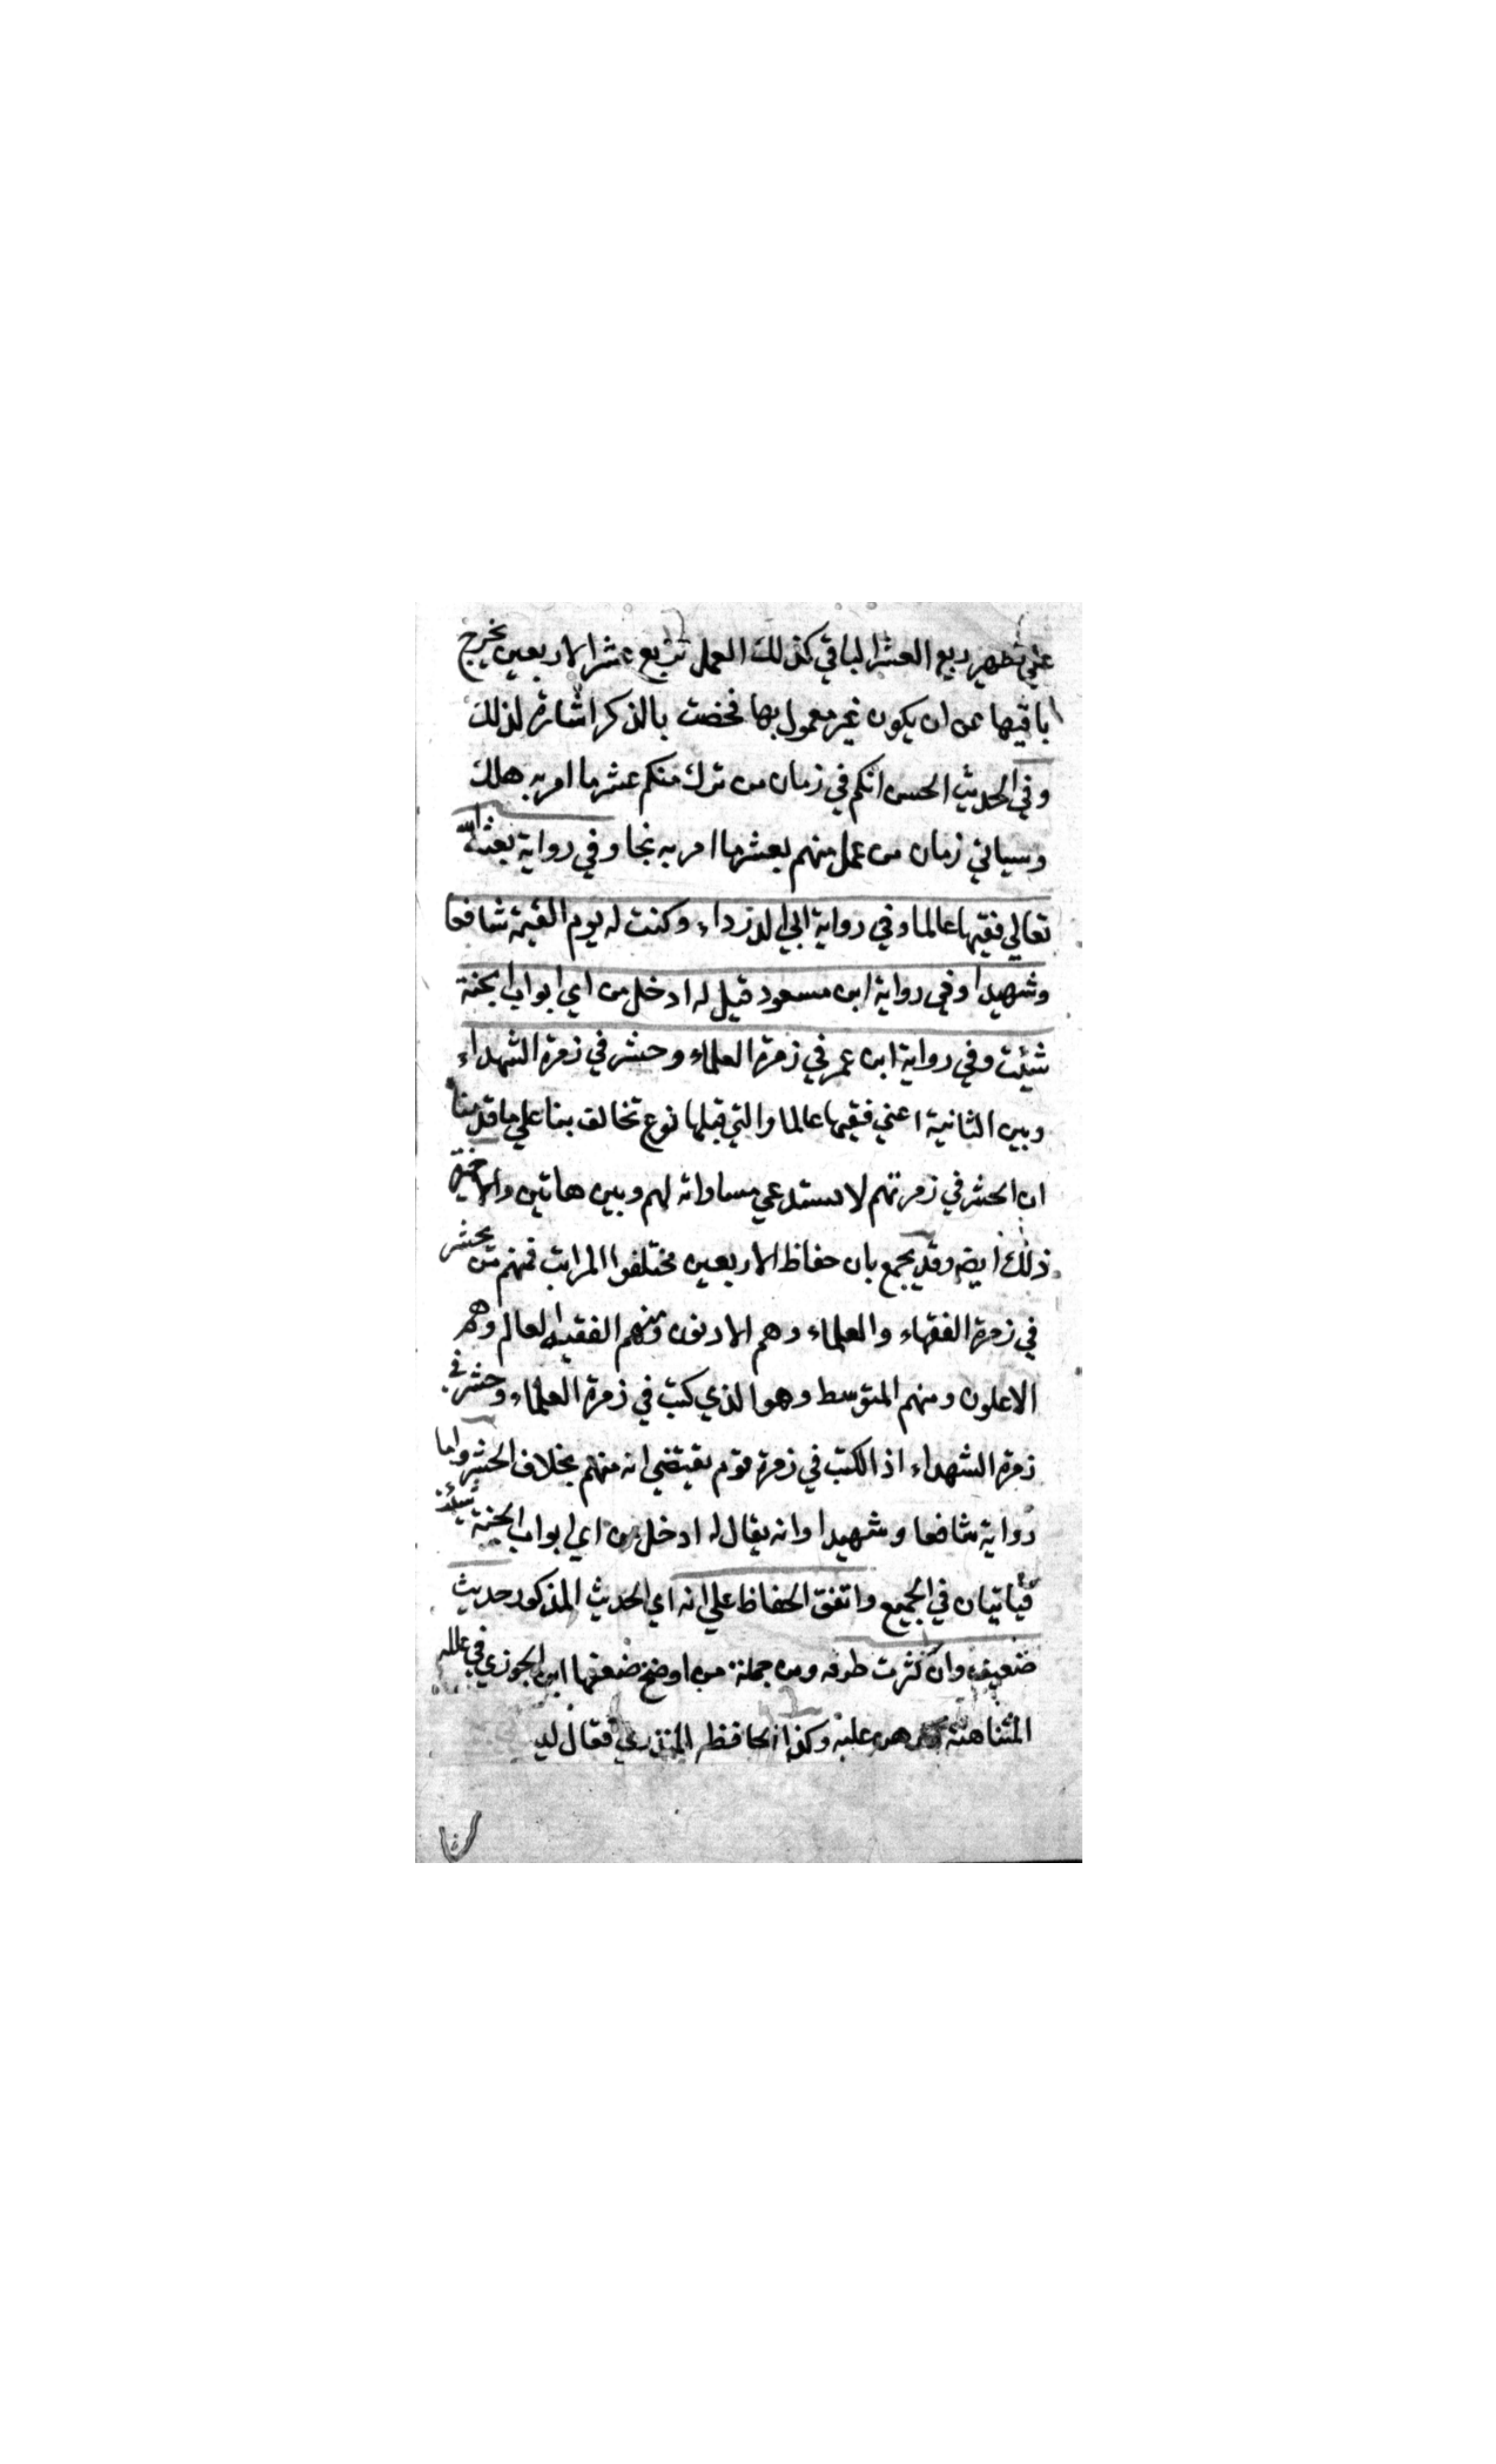 علي تطهير ربع العشر الباقي كذلك العمل بربع عشر الاربعين يخرج
باقيها عن ان يكون غير معمول بها فخصت بالذكر اشارة لذلك
وفي الحديث الحسن انكم في زمان من ترك منكم عشر ما امر به هلك
وسياتي زمان من عمل منهم بعشر ما امر به نجا وفي رواية بعثه الله
تعالي فقيها عالما وفي رواية ابي الدرداء وكنت له يوم القيمة شافعا
وشهيدا وفي رواية ابن مسعود قيل له ادخل من اي ابواب الجنة
شئت وفي رواية ابن عمر في زمرة العلماء وحشر في زمرة الشهداء
وبين الثانية اعني فقيها عالما والتي قبلها نوع تخالف بنا علي ما قدمنا
ان الحشر في زمرتهم لا يستدعي مساواته لهم وبين هاتين والاخيرة
ذلك ايضا وقد يجمع بان حفاظ الاربعين مختلفوا المراتب فمنهم من يحشر
في زمرة الفقهاء والعلماء وهم الادنون ومنهم الفقيه العالم وهم
الاعلون ومنهم المتوسط وهو الذي كتب في زمرة العلماء وحشر في
زمرة الشهداء اذ الكتب في زمرة قوم يقتضي انه منهم بخلاف الحشر واما
رواية شافعا وشهيدا وانه يقال له ادخل من اي ابواب الجنة شئت
فياتيان في الجميع واتفق الحفاظ علي انه اي الحديث المذكور حديث
ضعيف وان كثرت طرقه ومن جملة من اوضح ضعفها ابن الجوزي في علله
المتناهية وكذا الحافظ المنذري فقال ليـ